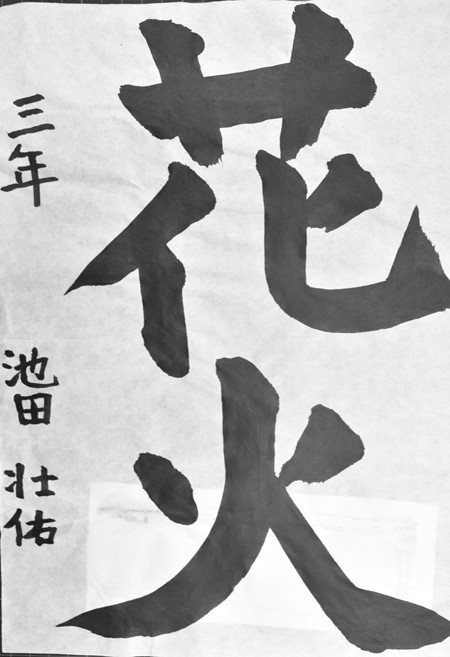 花火
三年 池田 壮佑